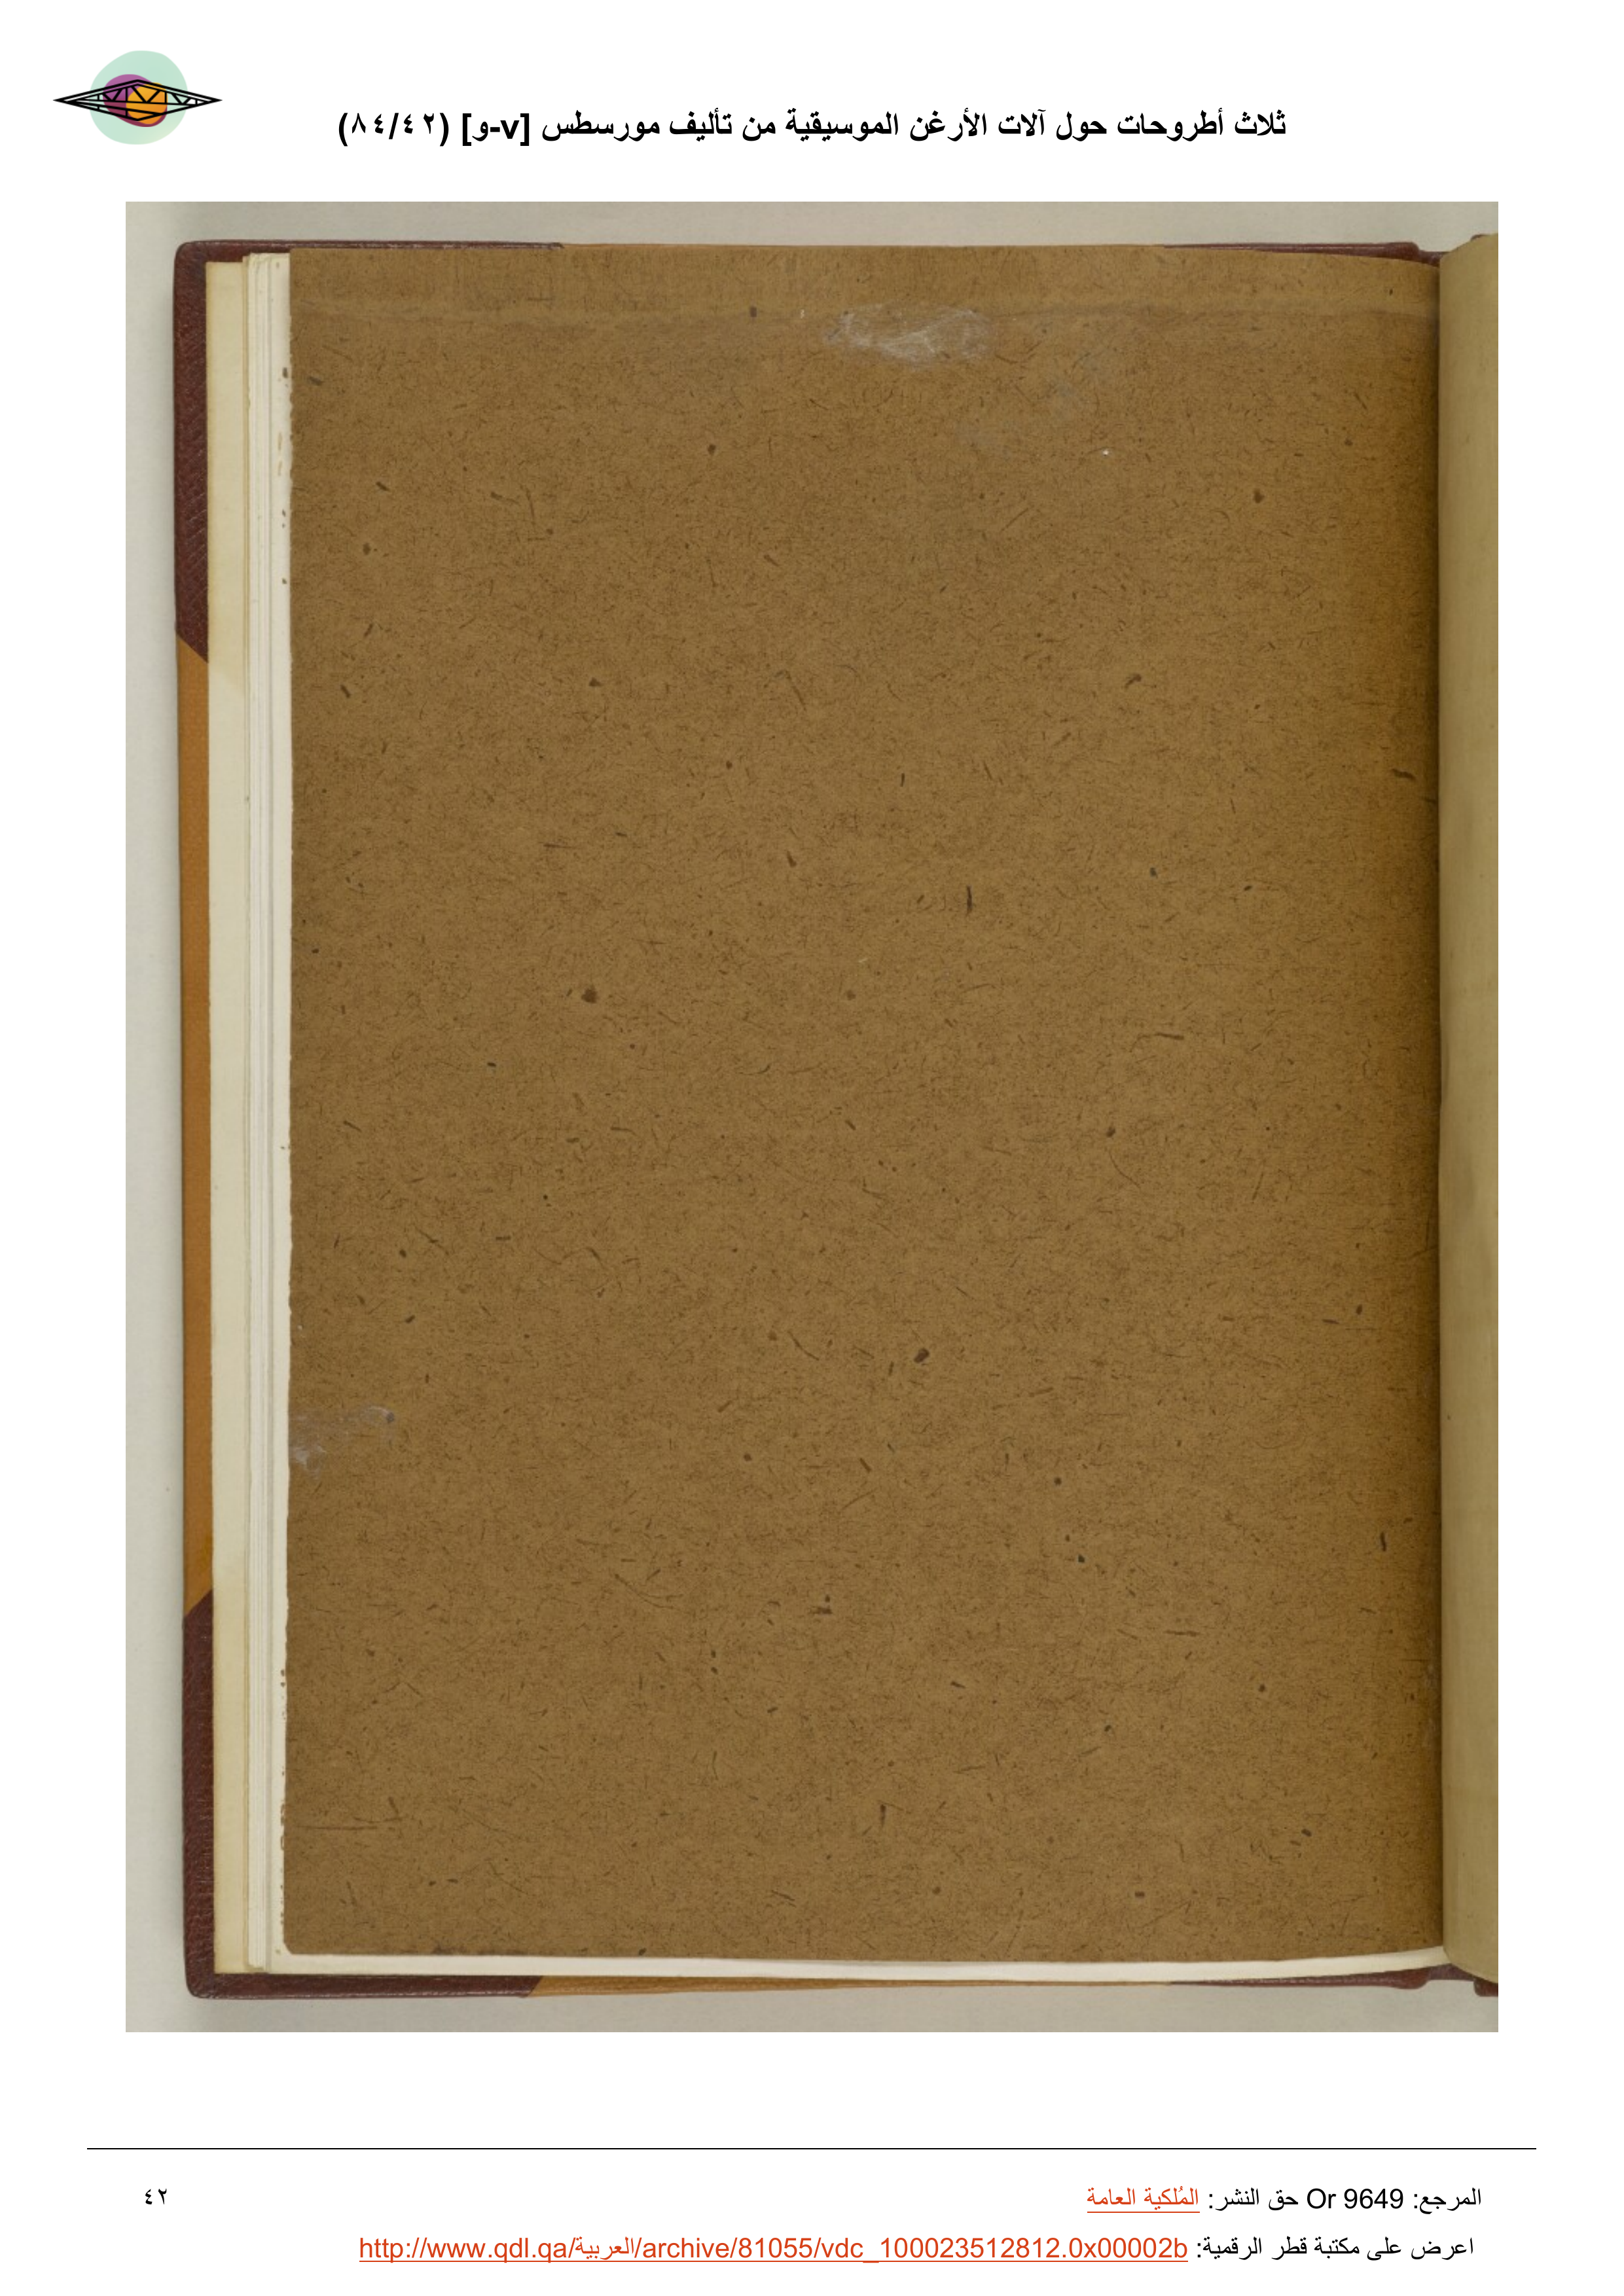 ثلاث أطروحات حول آلات الأرغن الموسيقية من تأليف مورسطس [v-و] (٨٤/٤٢)
المرجع: Or 9649 حق النشر: المُلكية العامة
٤٢
اعرض على مكتبة قطر الرقمية: http://www.qdl.qa/العربية/archive/81055/vdc_100023512812.0x00002b